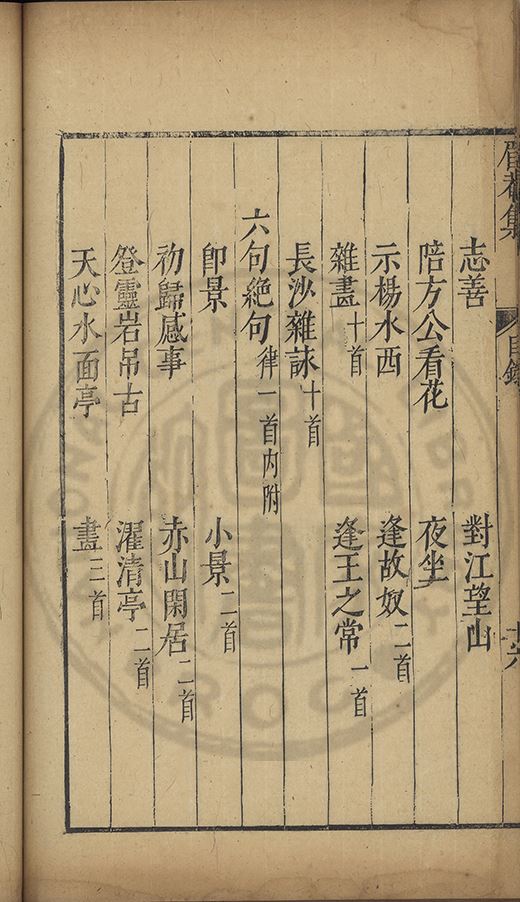 志善 對江望山
陪方公看花 夜坐
示楊水西 逢故奴二首
雜畫十首 逢王之常一首
長沙雜詠十首
六句絶句律一首内附
即景 小景二首
初歸感事 赤山閑居二首
登靈岩吊古 濯清亭二首
天心水面亭 畫三首